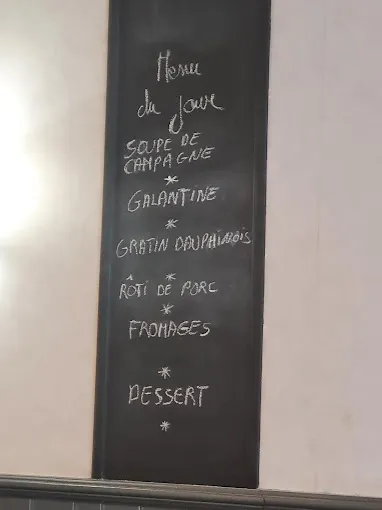 Menu
du jour
SOUPE DE
CAMPAGNE
*
GALANTINE
*
GRATIN DAUPHINOIS
*
RÔTI DE PORC
*
FROMAGES
*
DESSERT
*